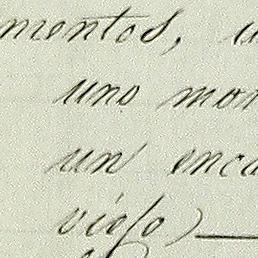 mentos, u
uno mon
un enca
viofo)—